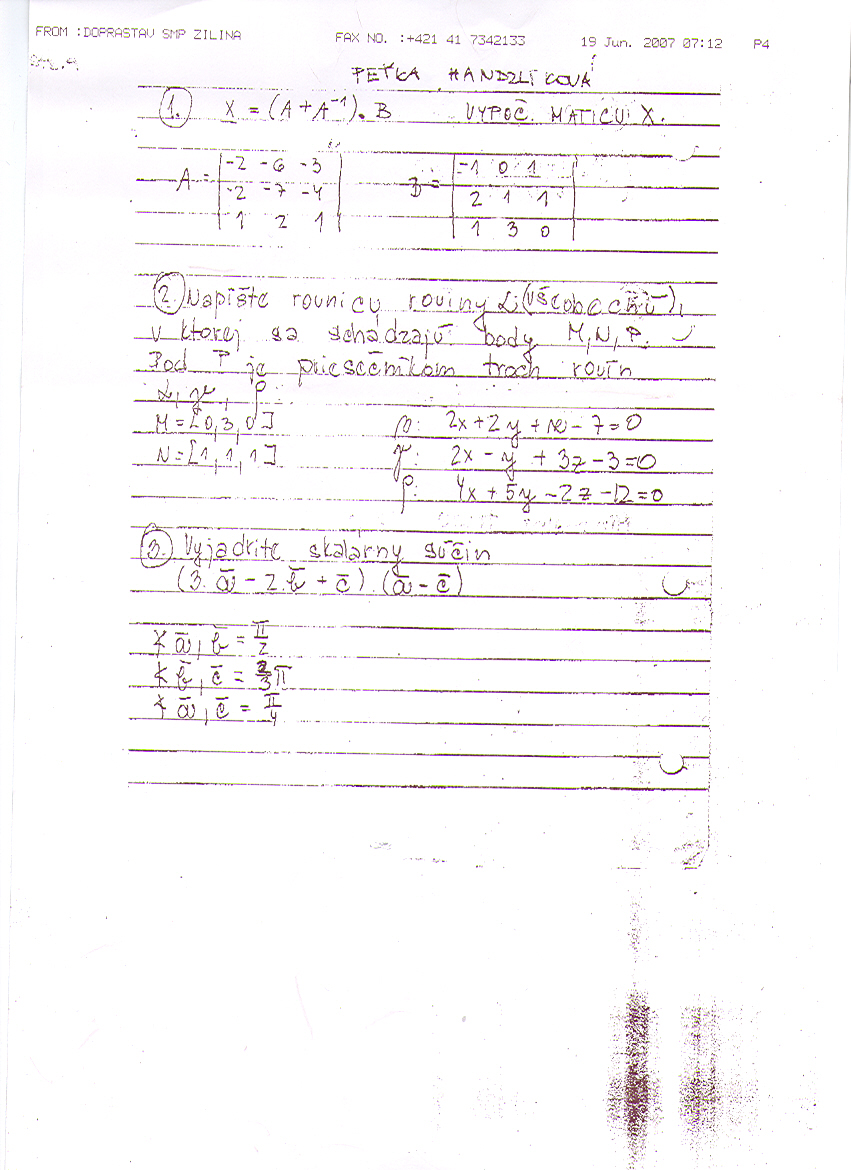 FROM :DOPRASTAV SMP ZILINA FAX NO. :+421 41 7342133 19 Jun. 2007 07:12 P4
PEŤKA HANDZLÍKOVÁ
1. X = (A + A⁻¹). B VYPOČ. MATICU X.
A = | -2 -6 -3 | B = | -1 0 1 |
| -2 -7 -4 | | 2 1 1 |
| 1 2 1 | | 1 3 0 |
2. Napíšte rovnicu roviny α (všeobecnú),
v ktorej sa schádzajú body M, N, P.
Bod P je priesečníkom troch rovín
M = [0, 3, 0] 2x + 2y + z - 7 = 0
N = [1, 1, 1] 2x - y + 3z - 3 = 0
ρ: 4x + 5y - 2z - 12 = 0
3. Vyjadrite skalárny súčin
(3. a̅ - 2. b̅ + c̅) . (a̅ - c̅)
∢ a̅, b̅ = π/2
∢ b̅, c̅ = 2/3 π
∢ a̅, c̅ = π/4